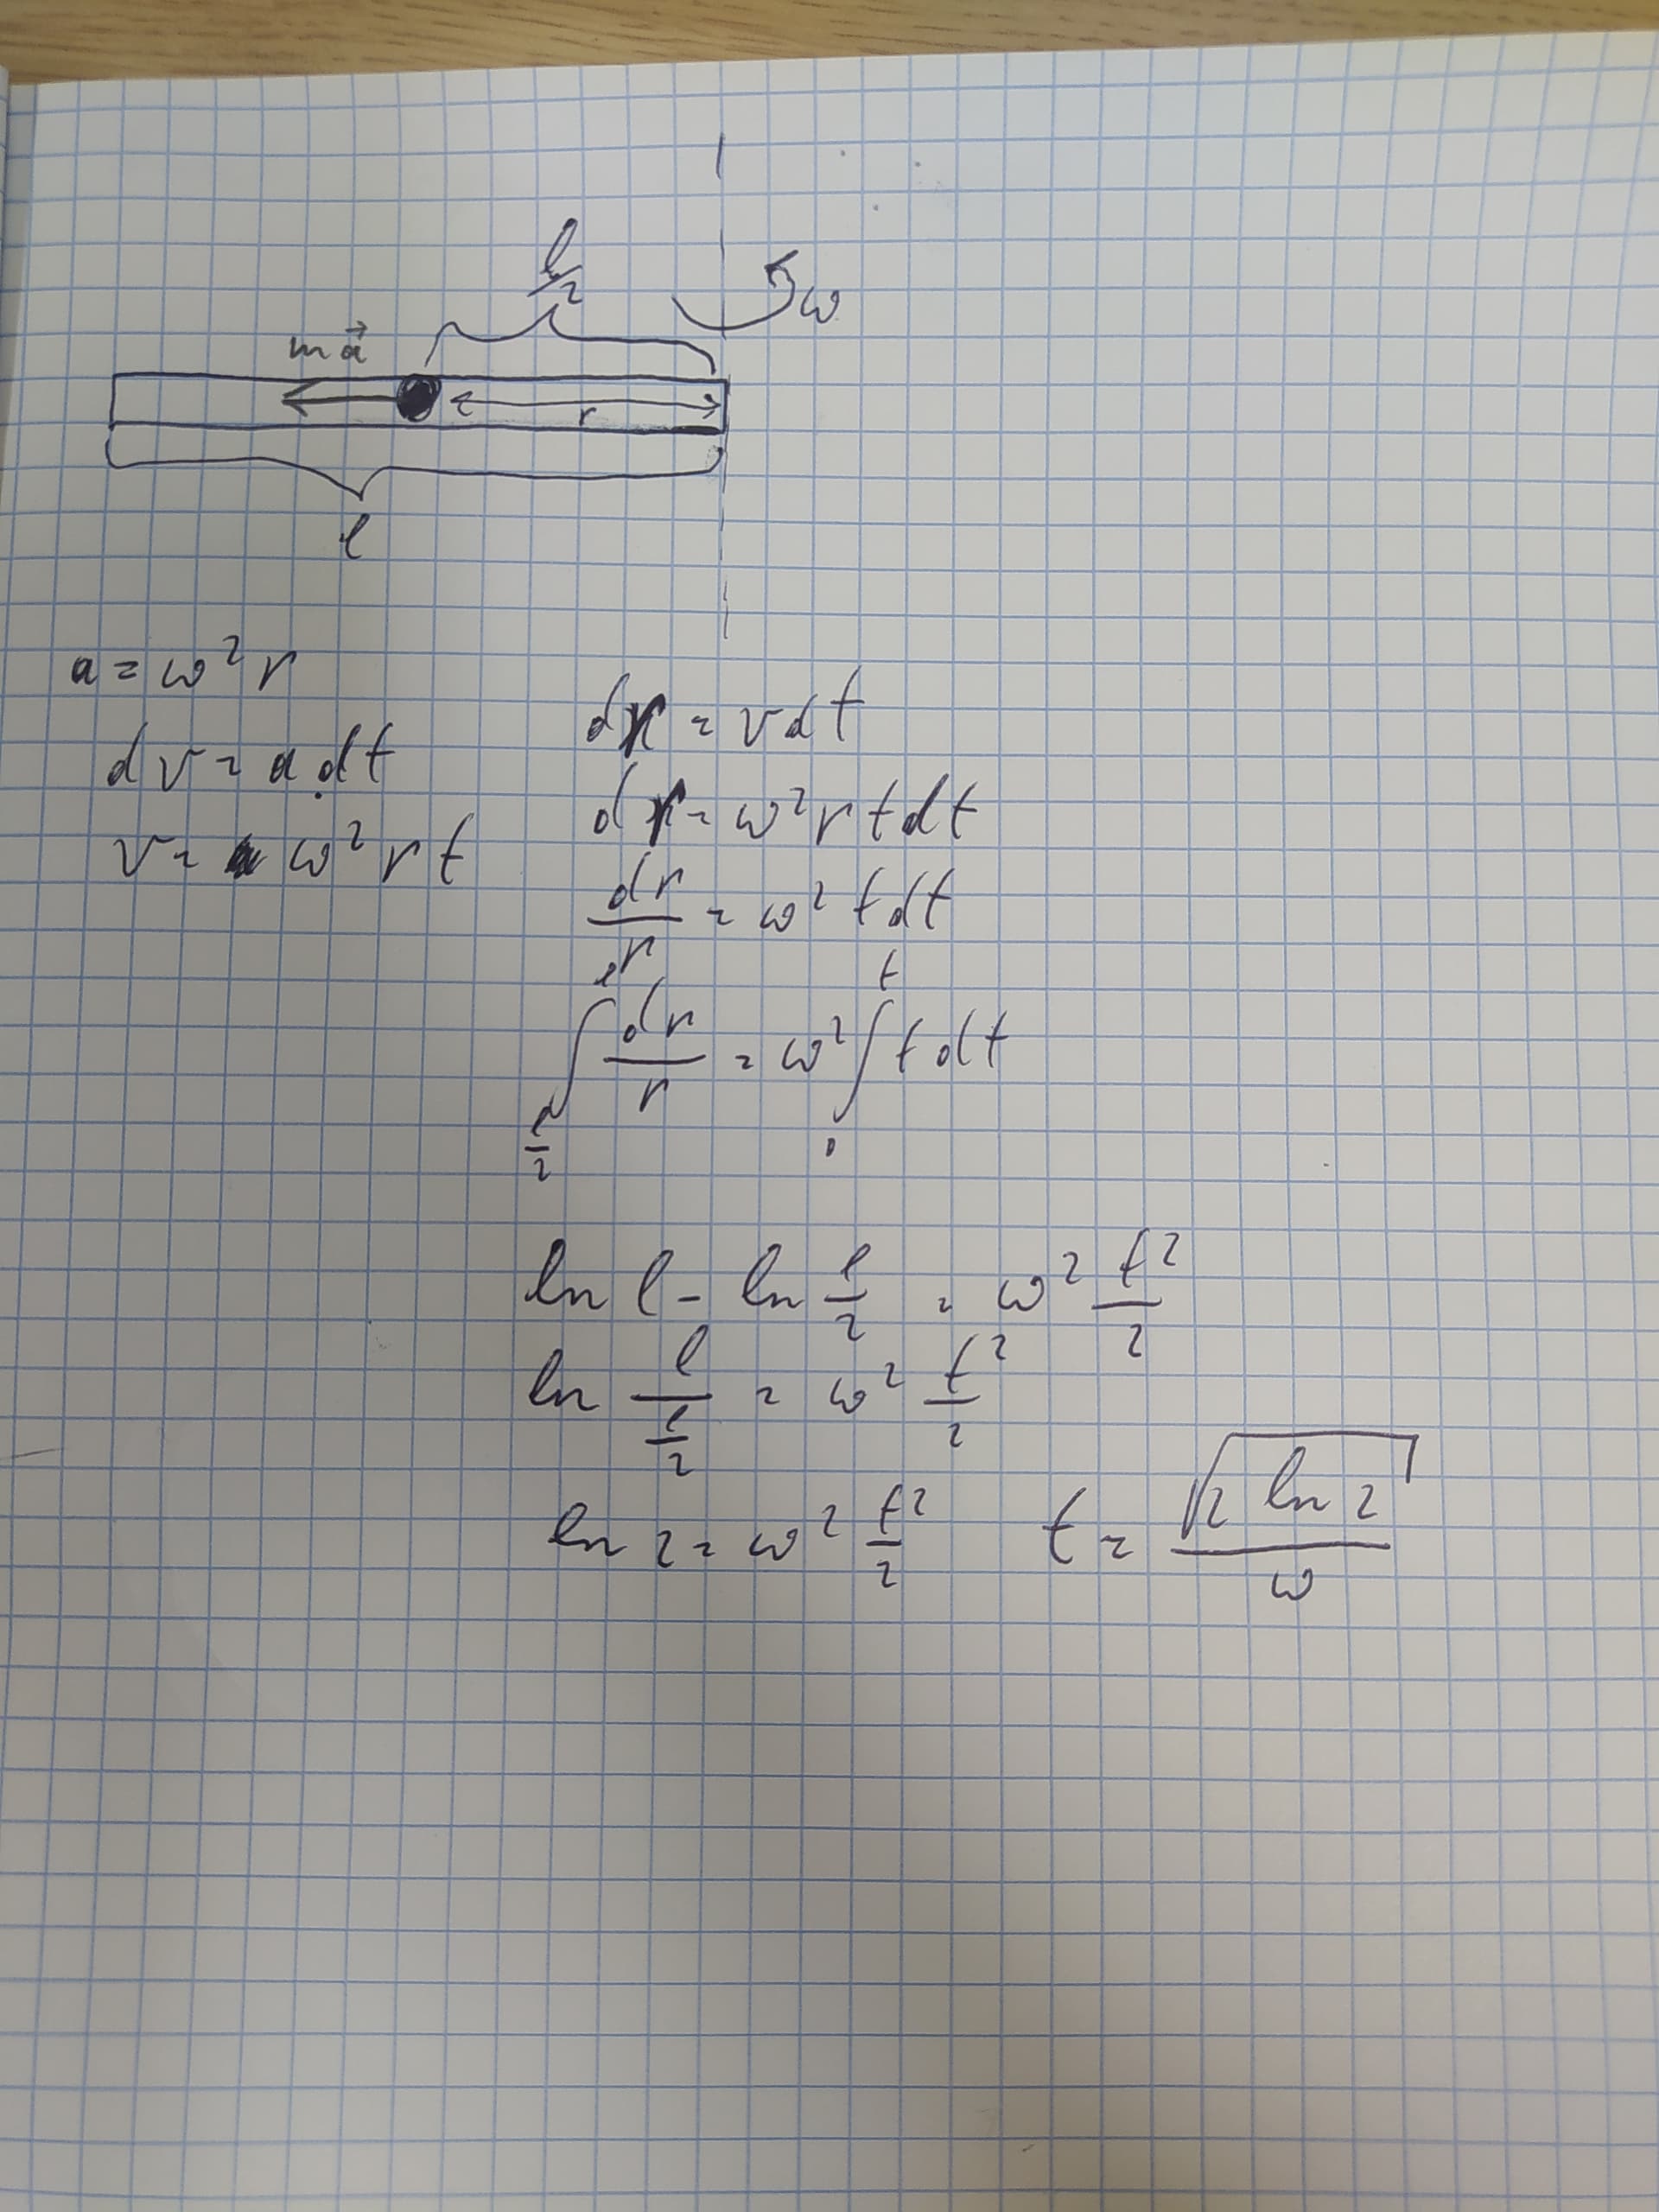 l/2
ω
ma⃗
r
l
a = ω² r
dv = a dt
v = ω² r t
dr = v dt
dr = ω² r t dt
dr/r = ω² t dt
∫_{l/2}^{l} dr/r = ω² ∫_0^t t dt
ln l - ln l/2 = ω² t²/2
ln l/(l/2) = ω² t²/2
ln 2 = ω² t²/2    t = √(2 ln 2)/ω